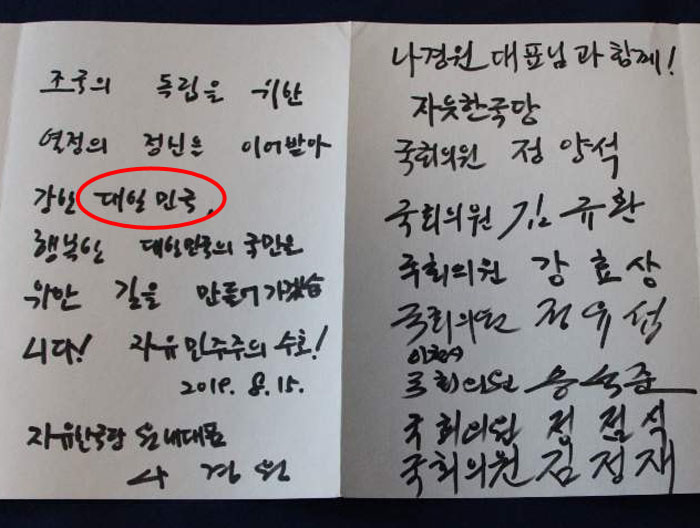 조국의 독립을 위한
열정의 정신을 이어받아
강한 대일민국,
행복한 대한민국의 국민을
위한 길을 만들어가겠습
니다! 자유민주주의 수호!
2019. 8. 15.
자유한국당 원내대표
나 경 원
나경원 대표님과 함께!
자유한국당
국회의원 정양석
국회의원 김규환
국회의원 강효상
국회의원 정유섭
국회의원 송석준
국회의원 정점식
국회의원 김정재